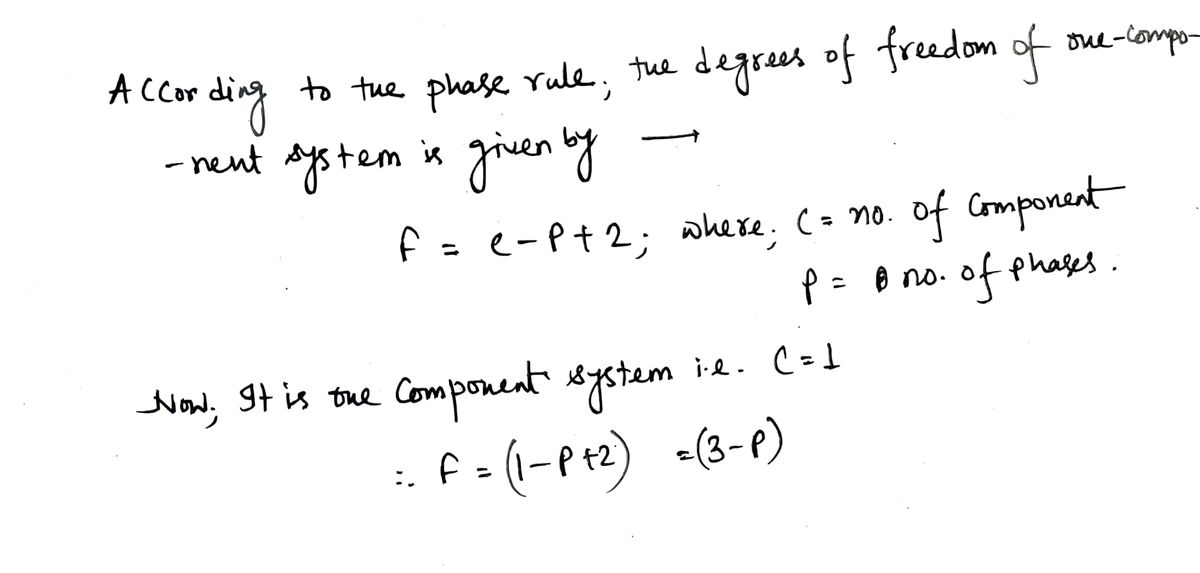 According to the phase rule, the degrees of freedom of one-compo-
-nent system is given by →
F = C-P+2; where; C = no. of Component
P = no. of phases.
Now; It is one Component system i.e. C=1
∴ F = (1-P+2) =(3-P)